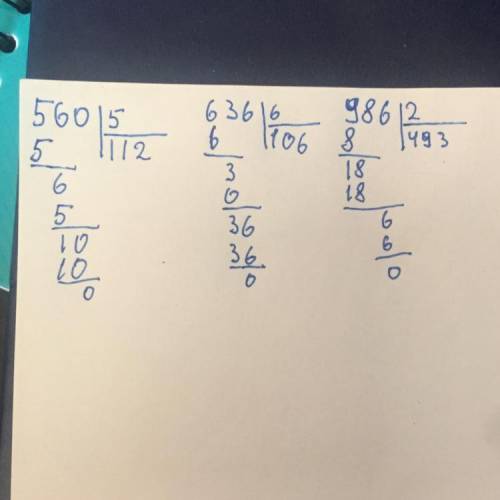 560 5
5 112
6
5
10
10
0
636 6
6 106
3
0
36
36
0
986 2
8 493
18
18
6
6
0